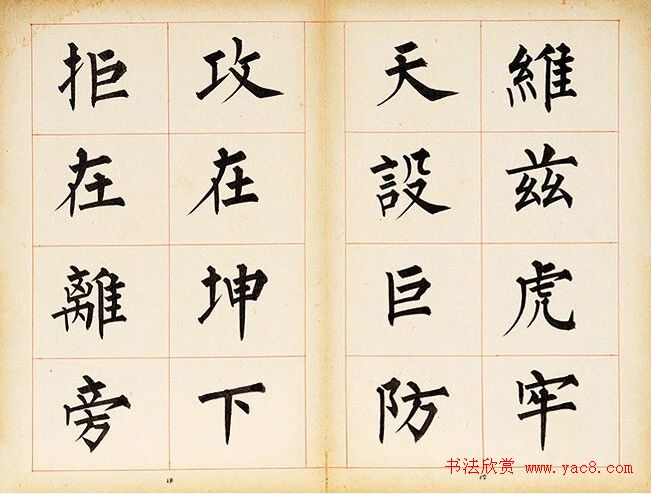 維兹虎牢
天設巨防
攻在坤下
拒在離旁
书法欣赏 www.yac8.com